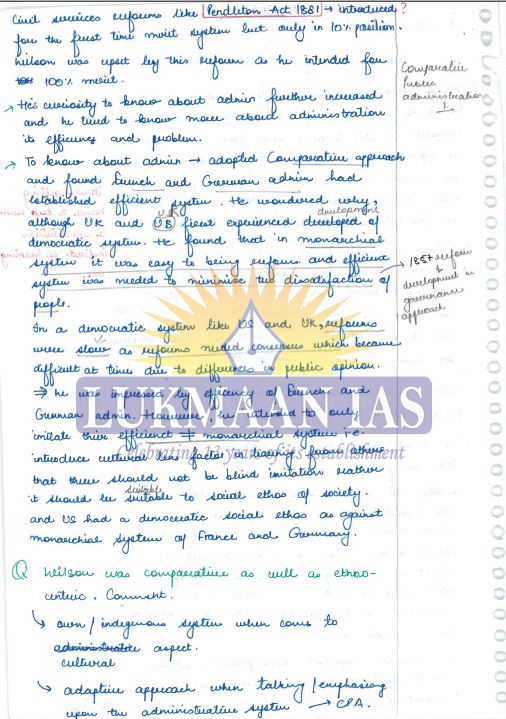 Civil services reforms like Pendleton Act 1881 → introduced ?
for the first time merit system but only in 10% position.
Wilson was upset by this reform as he intended for
100% merit.
→ His curiosity to know about admin further increased
and he tried to know more about administration
its efficiency and problem.
Comparative
Public
administration
→ To know about admin → adopted Comparative approach
and found French and German admin had
established efficient system. He wondered why,
although UK and US first experienced development of
democratic system. He found that in monarchial
system it was easy to bring reform and efficient
system was needed to minimise the dissatisfaction of
people.
→ 1857 reform
↓
development in
governance
approach
In a democratic system like US and UK, reforms
were slow as reforms needed consensus which became
difficult at times due to differences in public opinion.
⇒ he was impressed by efficiency of French and
German admin. However, he intended to only
imitate their efficient ≠ monarchial system i.e.
introduce cultural lens factor
that there should not be blind imitation rather
it should be suitable to social ethos of society.
and US had a democratic social ethos as against
monarchial system of France and Germany.
LUKMAAN IAS
Celebrating 12 years of its establishment
Q Wilson was comparative as well as ethno-
centric. Comment.
↳ own / indegenous system when comes to
cultural aspect.
↳ adaptive approach when talking / emphasing
upon the administrative system → CPA.